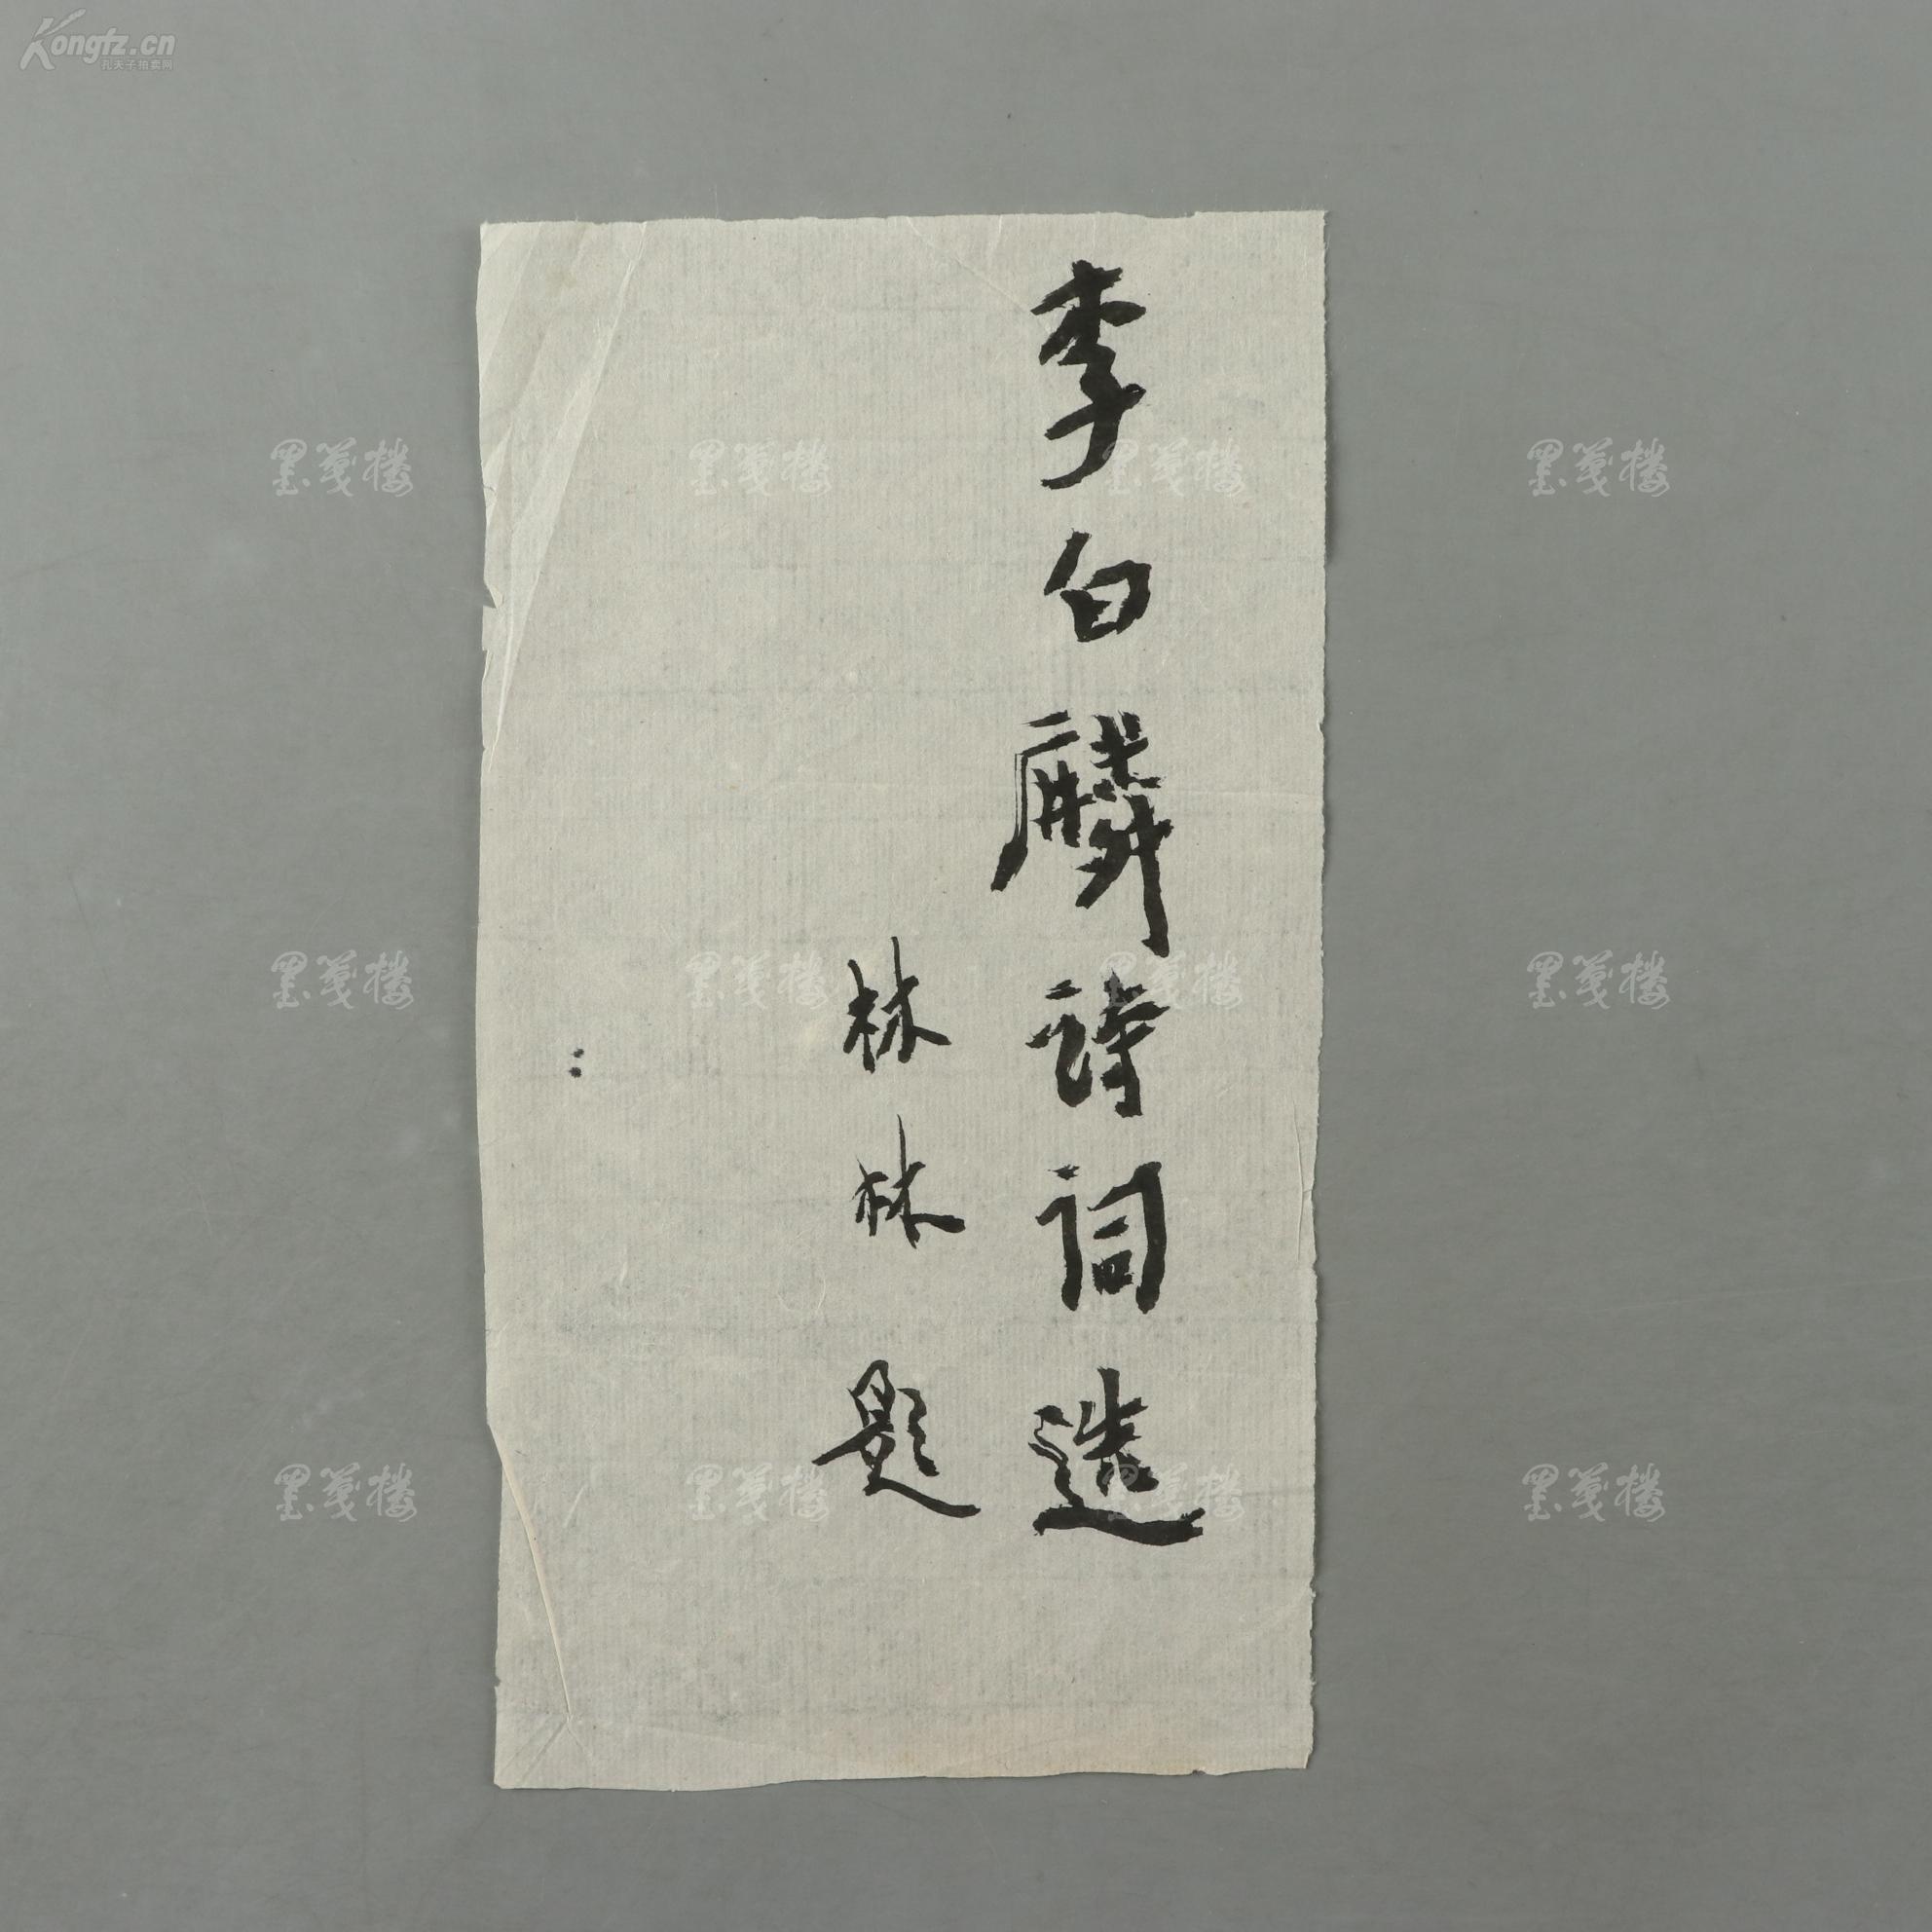 Kongfz.cn
孔夫子拍卖网
李白麟诗词选
林林题
墨笺楼 墨笺楼 墨笺楼 墨笺楼
墨笺楼 墨笺楼 墨笺楼 墨笺楼
墨笺楼 墨笺楼 墨笺楼 墨笺楼